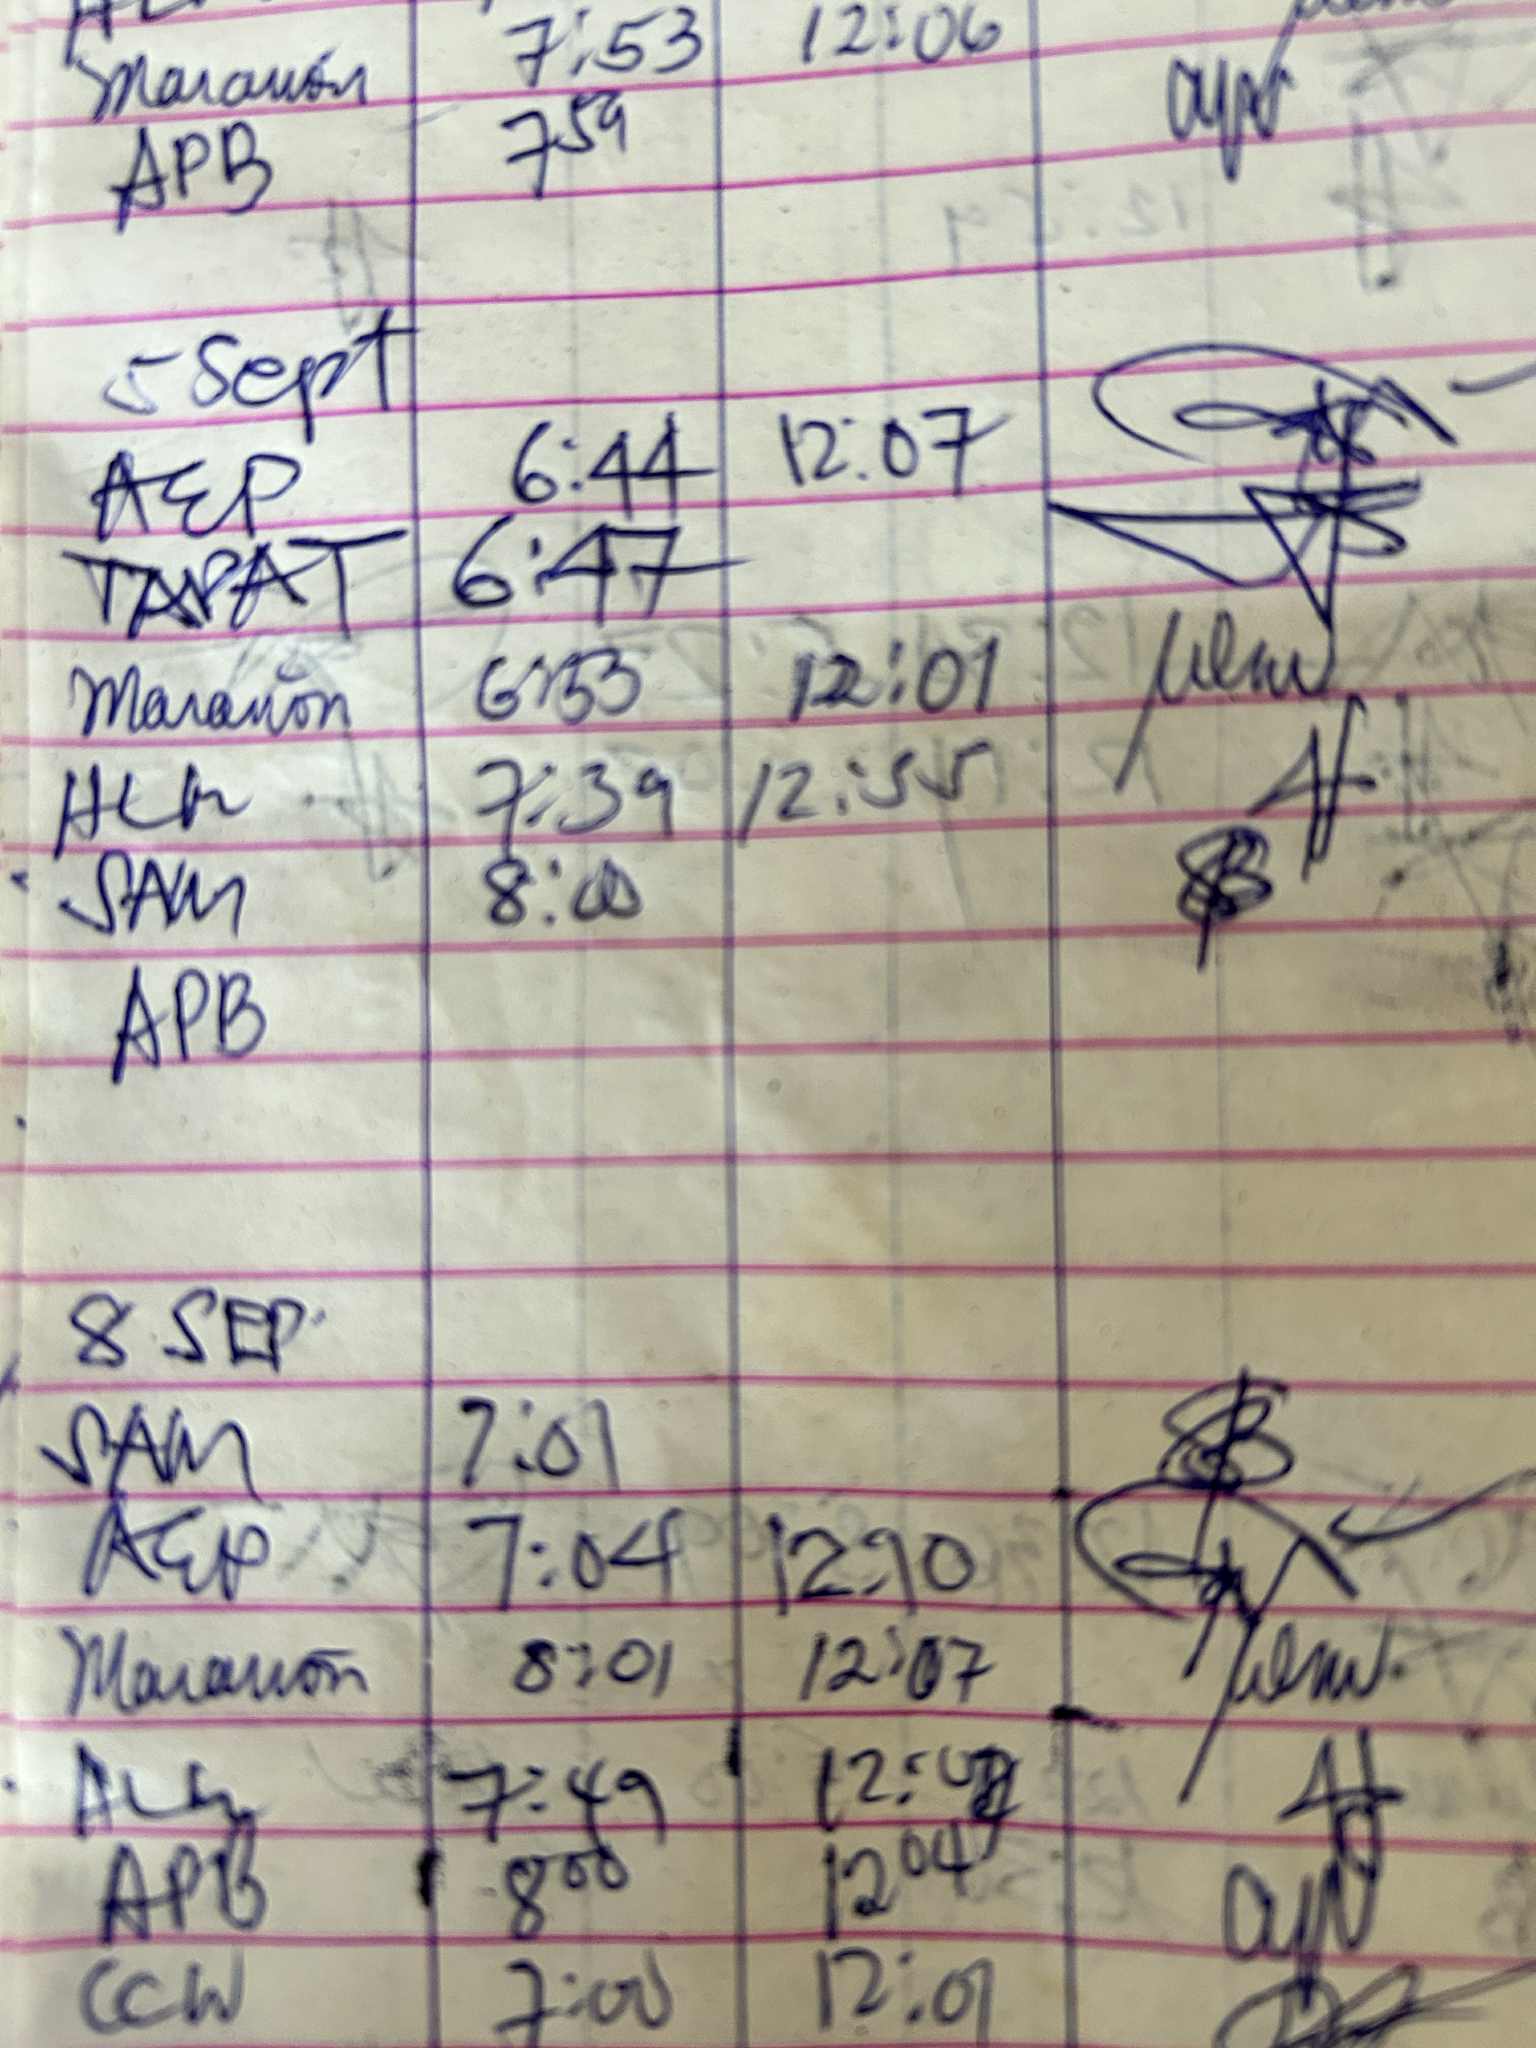 Marañon 7:53 12:06
APB 7 59
5 Sept
AEP 6:44 12:07
TAPAT 6:47
Marañon 6:53 12:01
HLM 7:39 12:55
SAM 8:00
APB
8 SEP
SAM 7:01
AEP 7:04 12:10
Marañon 8:01 12:07
7:49
APB 8 00 12 04
CCW 7:00 12:01